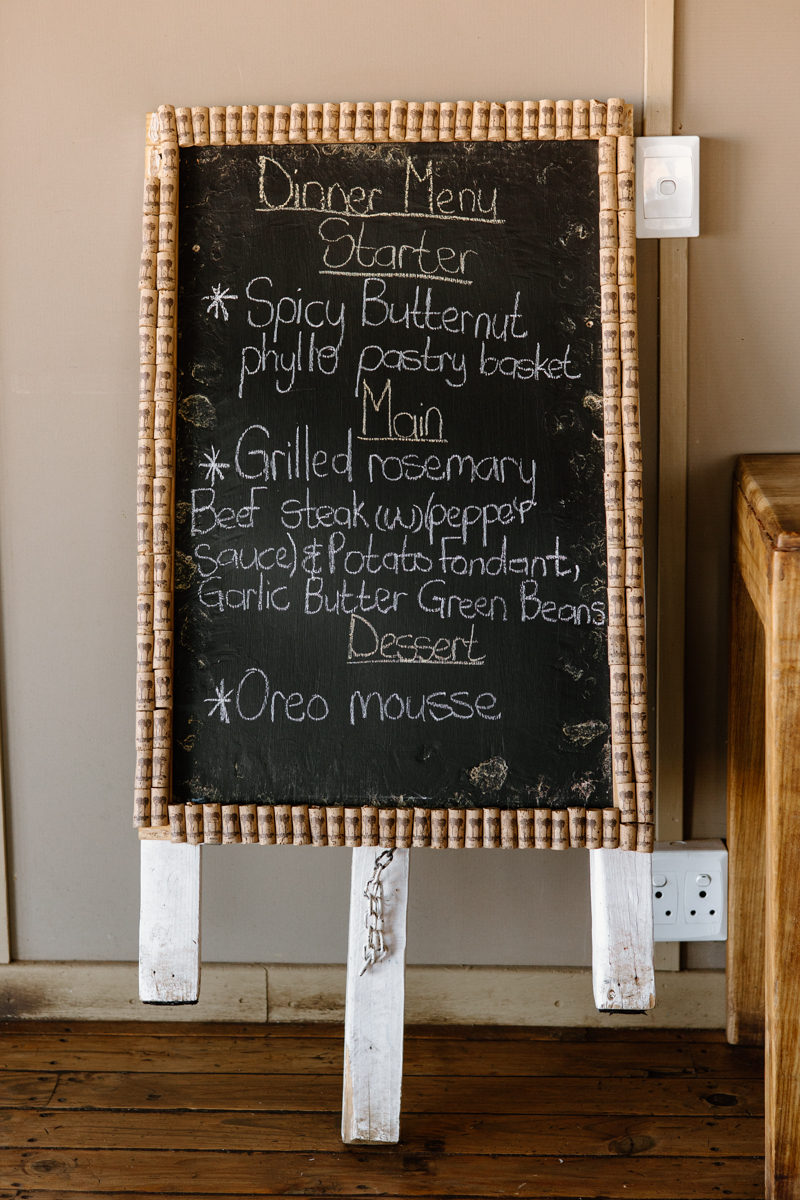 Dinner Menu
Starter
* Spicy Butternut
phyllo pastry basket
Main
* Grilled rosemary
Beef steak (w)(pepper
sauce) & Potato Fondant,
Garlic Butter Green Beans
Dessert
* Oreo mousse